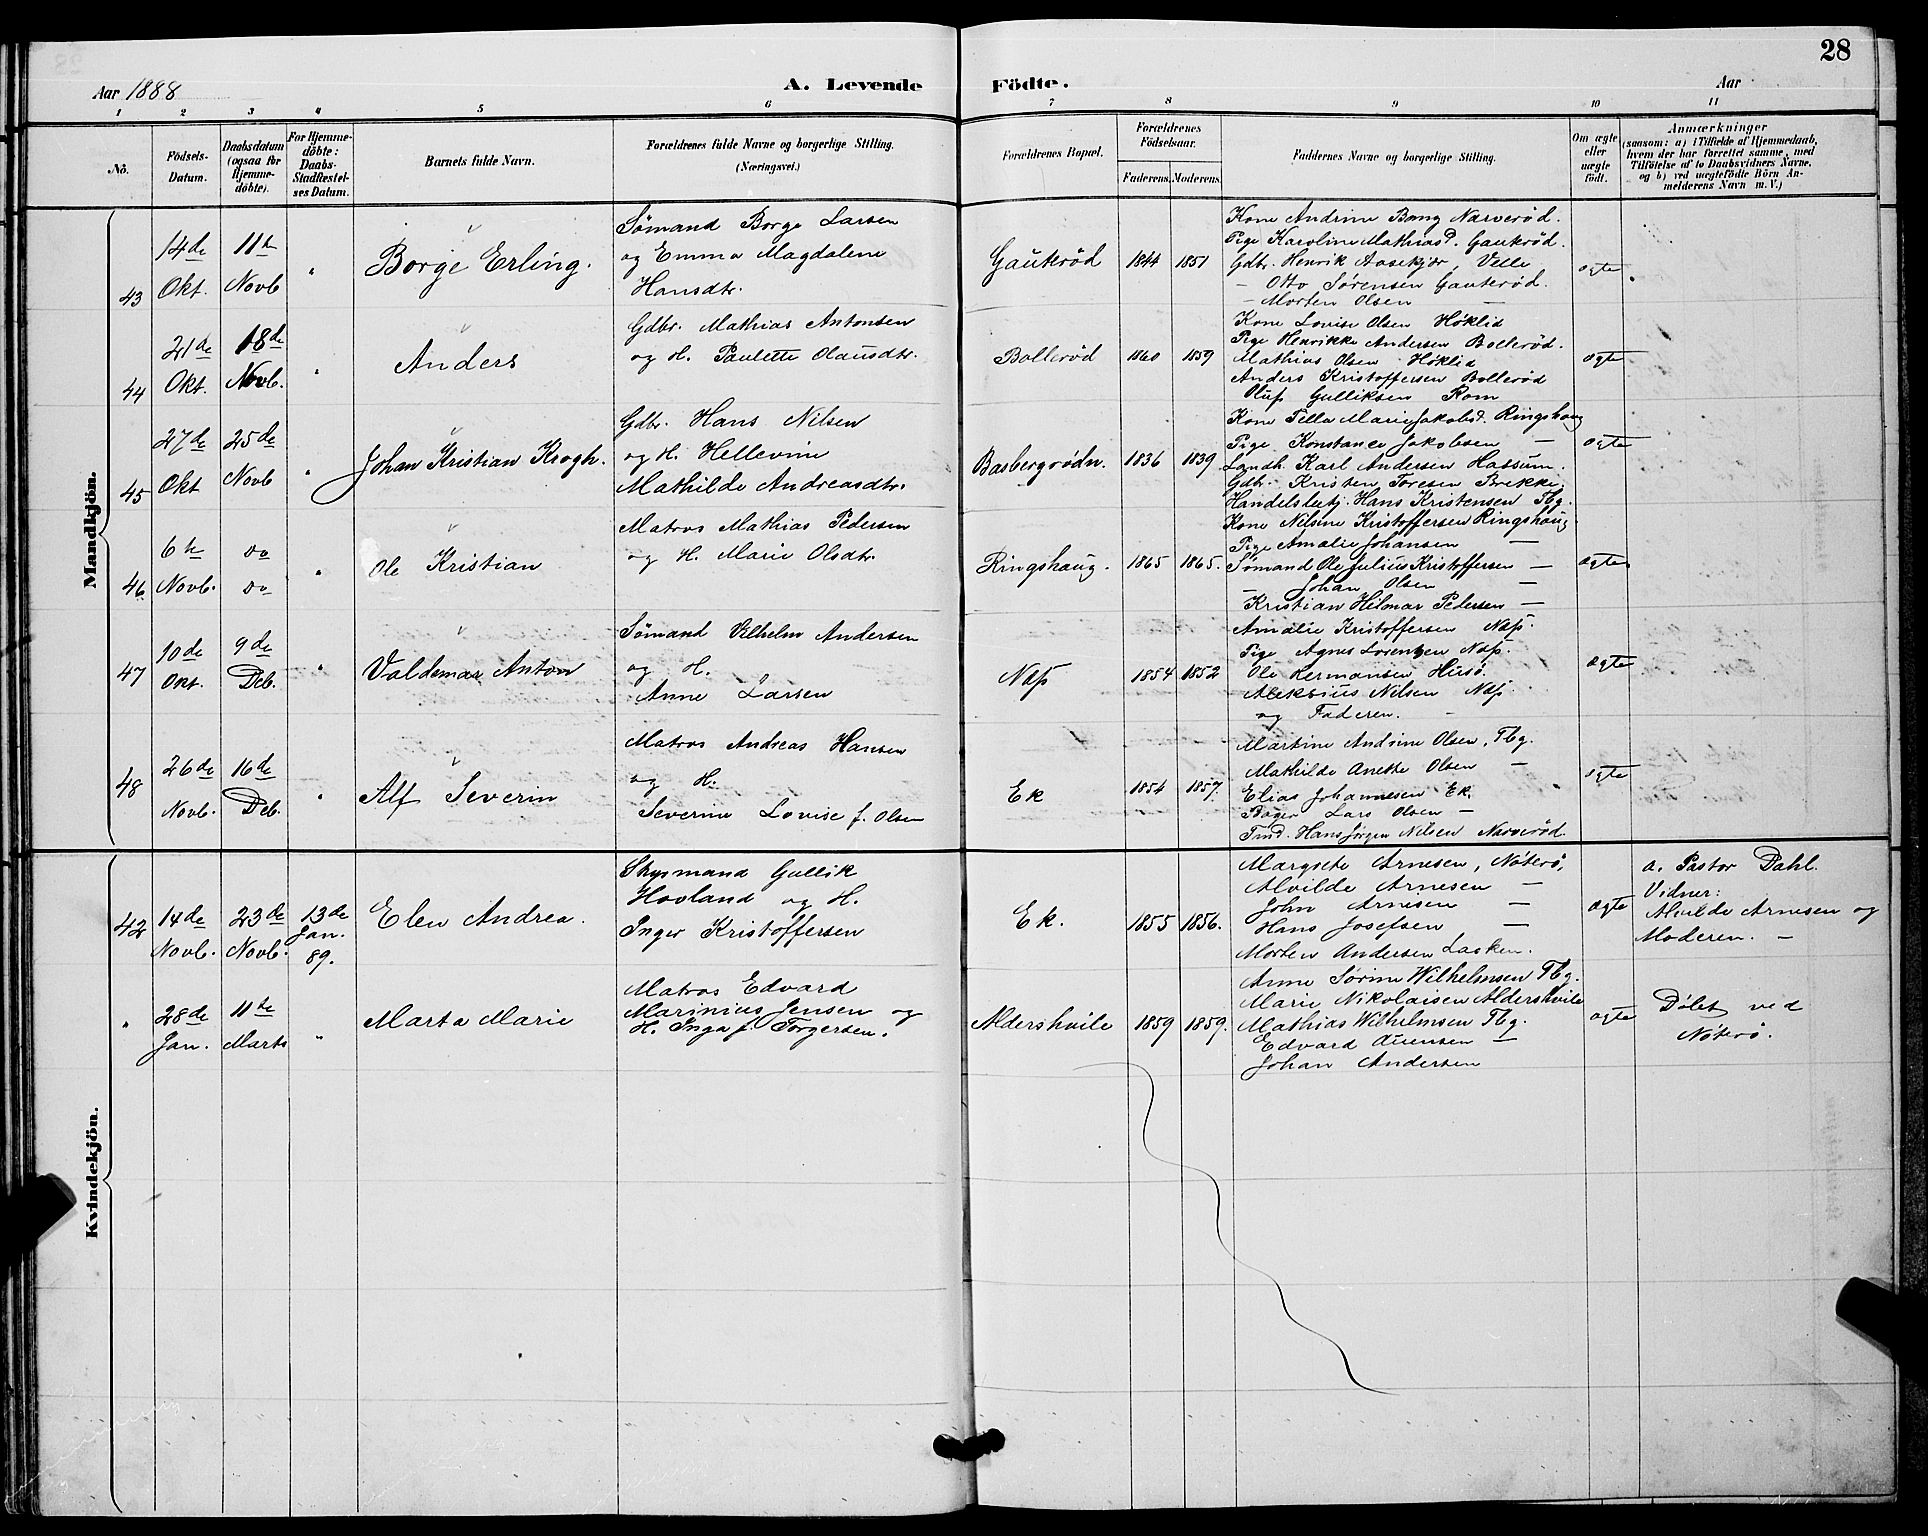 28
Aar 1888
A. Levende Födte.
Aar
1 2 3 4 5 6 7 8 9 10 11
Nô.
Födsels-Datum.
Daabsdatum (ogsaa for Hjemme-döbte).
For Hjemme-döbte: Daabs-Stadfæstel-ses Datum.
Barnets fulde Navn.
Forældrenes fulde Navne og borgerlige Stilling. (Næringsvei.)
Forældrenes Bopæl.
Forældrenes Födselsaar.
Faderens. Moderens.
Faddernes Navne og borgerlige Stilling.
Om ægte eller uægte født.
Anmærkninger
(saasom: a) i Tilfælde af Hjemmedaab, hvem der har forrettet samme, med Tilföielse af to Daabsvidners Navne, og b) ved uægtefödte Börn An-melderens Navn m. V.)
Mandkjön.
43
14de Okt.
11te Novb
"
Borge Erling.
Sømand Borge Larsen
og Emma Magdalene
Hansdtr.
Gaukrød
1844 1851
Kone Andrine Bang Narverød.
Pige Karoline Mathiasd. Gaukrød.
Gdbr. Henrik Aasekjær, Velle
- Otto Sørensen Gauterød.
- Morten Olsen —
ægte
44
21de Okt.
18de Novb.
"
Anders
Gdbr. Mathias Antonsen
og H. Paulette Olausdtr.
Bollerød
1860 1859
Kone Lovise Olsen Høklid
Pige Henrikke Andersen Bollerød.
Mathias Olsen Høklid
Anders Kristoffersen Bollerød
Oluf Gulliksen Rom
ægte
45
27de Okt
25de Novb
"
Johan Kristian Krogh.
Gdbr. Hans Nilsen
og H. Hellevine
Mathilde Andreasdtr.
Basbergrødn.
1836 1839
Kone Pella Marie Jakobsd. Ringshaug
Pige Konstance Jakobsen —
Landh. Karl Andersen Hassum.
Gdbr. Kristen Toresen Brekke,
Handelsbetj. Hans Kristensen Tbg.
ægte
46
6te Novb.
do do
"
Ole Kristian
Matros Mathias Pedersen
og H. Marie Olsdtr.
Ringshaug.
1865 1865.
Kone Nilsine Kristoffersen Ringshaug.
Pige Amalie Johansen —
Sømand Ole Julius Kristoffersen —
— Johan Olsen —
Kristian Hilmar Pedersen —
ægte
47
10de Okt.
9de Deb.
"
Valdemar Anton
Sømand Vilhelm Andersen
og H.
Anne Larsen
Næs
1854 1852
Amalie Kristoffersen Næs.
Pige Agnes Lorentzen Næs.
Ole Hermansen Husø.
Aleksius Nilsen Næs.
og Faderen.
ægte
48
26de Novb.
16de Deb.
"
Alf Severin
Matros Andreas Hansen
og H.
Severine Lovise f. Olsen
Ek
1854 1857.
Martine Andrine Olsen, Tbg.
Mathilde Anette Olsen —
Elias Johannesen Ek.
Bager Lars Olsen —
Tmd. Hans Jørgen Nilsen Narverød
ægte
Kvindekjön.
42
14de Novb.
23de Novb.
13de Jan. 89.
Elen Andrea.
Skysmand Gullik
Hovland og H.
Inger Kristoffersen
Ek.
1855 1856.
Margrete Arnesen, Nøterø,
Alvilde Arnesen —
John Arnesen —
Hans Josefsen —
Morten Andersen Lasken.
ægte
a. Pastor Dahl.
Vidner:
Alvilde Arnesen og
Moderen. —
"
28de Jan.
11te Marts
"
Marta Marie
Matros Edvard
Marinius Jensen og
H. Inga f. Torgersen.
Aldershvile
1859 1859.
Anne Sørine Wilhelmsen Tbg.
Marie Nikolaisen Aldershvile
Mathias Wilhelmsen Tbg.
Edvard —
Johan Andersen
ægte
Døbt ved
Nøterø.